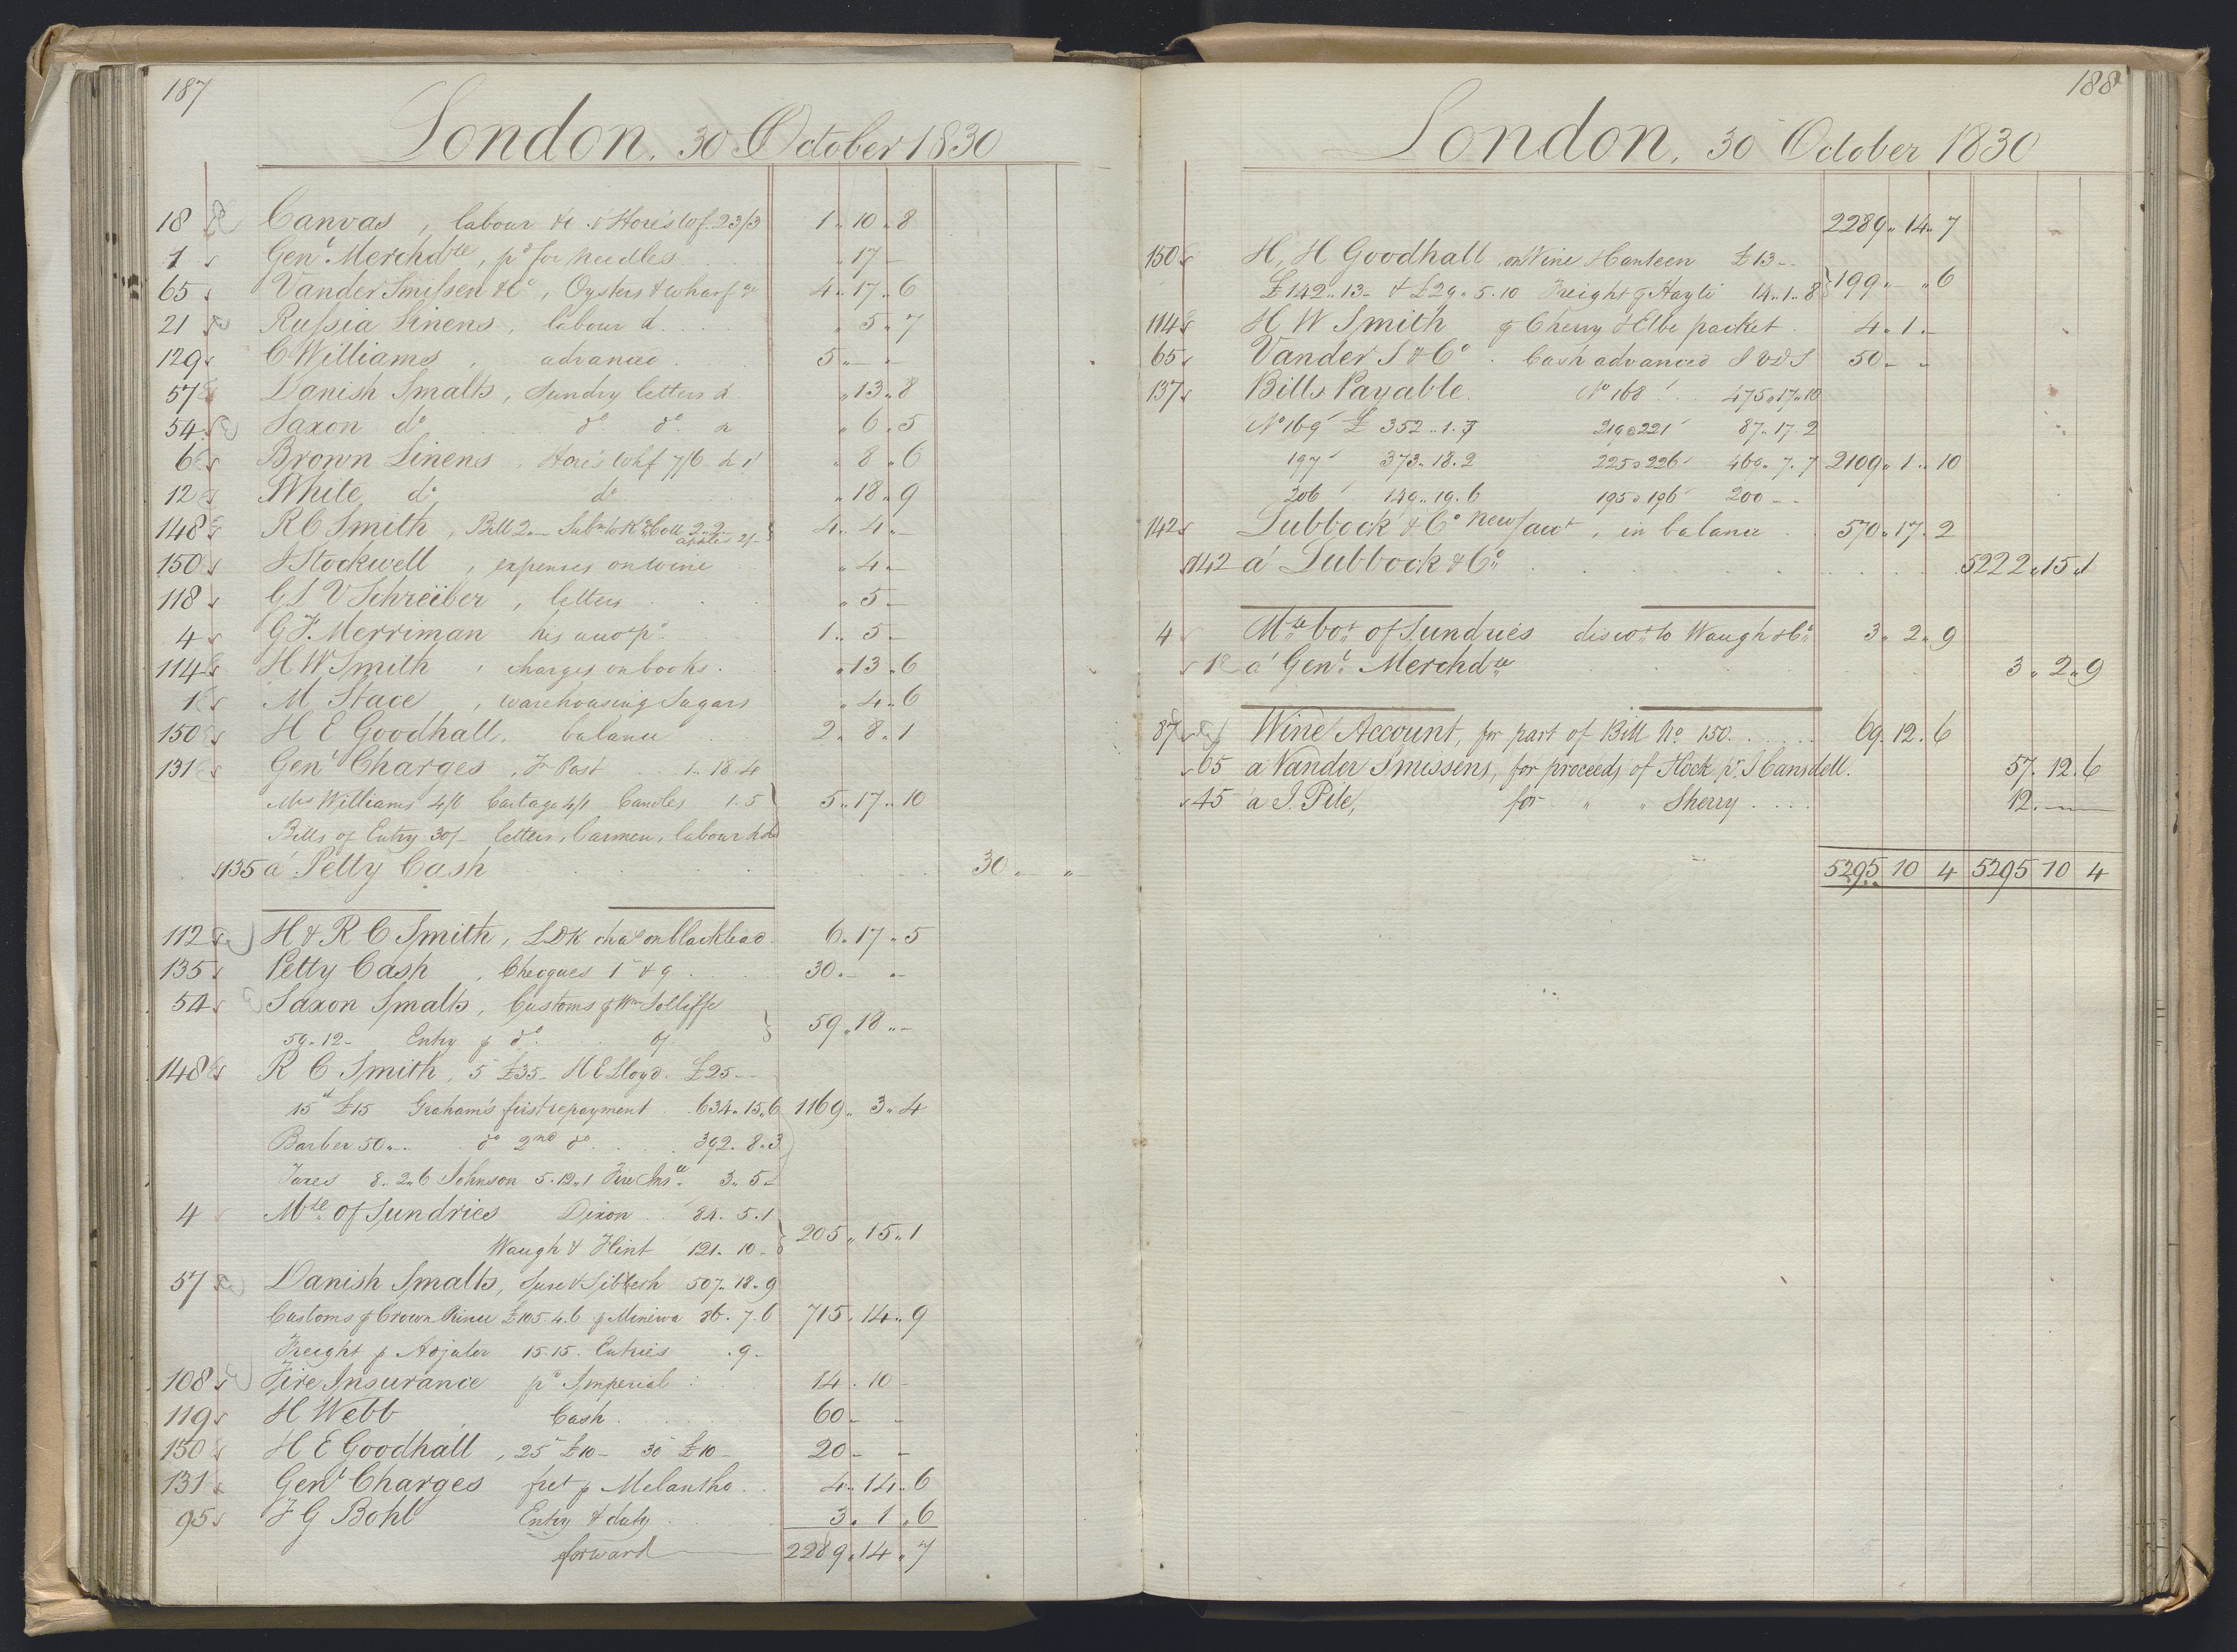 187
London, 30 October 1830
18 Canvas, labour &c Hore's Whf 23/3 1 " 10 " 8
1 Genl. Merchdze, pd for needles " 17 -
65 Vander Smissen & Co, Oysters & wharfge 4 " 17 " 6
21 Russia Linens, labour &. " 5 " 7
129 C Williams, advanced 5 " - "
57 Danish Smalts, Sundry letters & " 13 " 8
54 Saxon do do do & " 6 " 5
6 Brown Linens, Hore's Whf 7/6 & 1/ " 8 " 6
12 White do do " 18 " 9
148 R C Smith, Bill 2 " - Subn to K Coll 2 " 2 - apples 2/- 4 " 4 " -
150 J Stockwell, expenses on wine " 4 " -
118 G L V Schreiber, letters " 5 -
4 G F. Merriman his acct pd 1 " 5 -
114 H W Smith, charges on books. " 13 " 6
1 M Stace, warehousing Sugars " 4 " 6
150 H E Goodhall, balance 2 " 8 " 1
131 Genl Charges, Fn Post 1 " 18 " 4
Mrs Williams 4/6 Cartage 4/1 Candles 1 " 5 5 " 17 " 10
Bills of Entry 30/- letters, Carmen, labour &c
135 a Petty Cash 30 " - "
112 H & R C Smith, LDK chas on blacklead 6 " 17 " 5
135 Petty Cash, Checques 1 & 9 30 " - " -
54 Saxon Smalts, Customs p Wm Jolliffe
59 " 12 - Entry p do 6/ 59 " 18 " -
148 R C Smith, 5 £35 - H E Lloyd. £25 -
15th £15 Graham's first repayment 634 " 15 " 6 1169 " 3 " 4
Barber 50 " - do 2nd do 392 " 8 " 3
Taxes 8 " 2 " 6 Johnson 5 " 12 " 1 Fire Insce 3 " 5 -
4 Mdze of Sundries Dixon 84 " 5 " 1
Waugh & Flint 121 " 10 - 205 " 15 " 1
57 Danish Smalts, Sure & Sibbesh 507 " 18 " 9
Customs p Crown Prince £105 " 4 " 6 p Minerva 86 " 7 " 6 715 " 14 " 9
Freight p Adjuter 15 " 15. Entries " 9 -
108 Fire Insurance pd Imperial 14 " 10 -
119 H Webb Cash 60 - -
150 H E Goodhall, 25 £10 - 30 £10 - 20 - -
131 Genl Charges frt p Melantho 4 " 14 " 6
95 F G Bohl Entry & duty 3 " 1 " 6
forward 2289 " 14 " 7
188
London, 30 October 1830
2289 " 14 " 7
150 H, H Goodhall on Wine Hanteen £13 -
£142 " 13 - & £29 " 5 " 10 Freight p Hayti 14 " 1 " 8 199 " - " 6
114 H W Smith p Cherry & Elbe packet 4 " 1 " -
65 Vander S & Co. Cash advanced J V D S 50 - -
137 Bills Payable. No 168 475 " 17 " 10
No 169 £ 352 " 1 " 7 219 @ 221 87 " 17 " 2
197 373 " 18 " 2 225 @ 226 469 " 7 " 7 2109 " 1 " 10
206 149 " 19 " 6 195 @ 196 200 - -
142 Lubbock & Co new acct, in balance 570 " 17 " 2
142 a Lubbock & Co 5222 " 15 " 1
4 Mdze bot of Sundries discot to Waugh & Co 3 " 2 " 9
a Genl Merchdze 3 " 2 " 9
87 Wine Account, for part of Bill No 150 69 " 12 " 6
65 a Vander Smissens, for proceeds of Hock pr J Cansdell. 57 " 12 " 6
45 a J. Pile, for " " Sherry 12 " - -
5295 10 4 5295 10 4